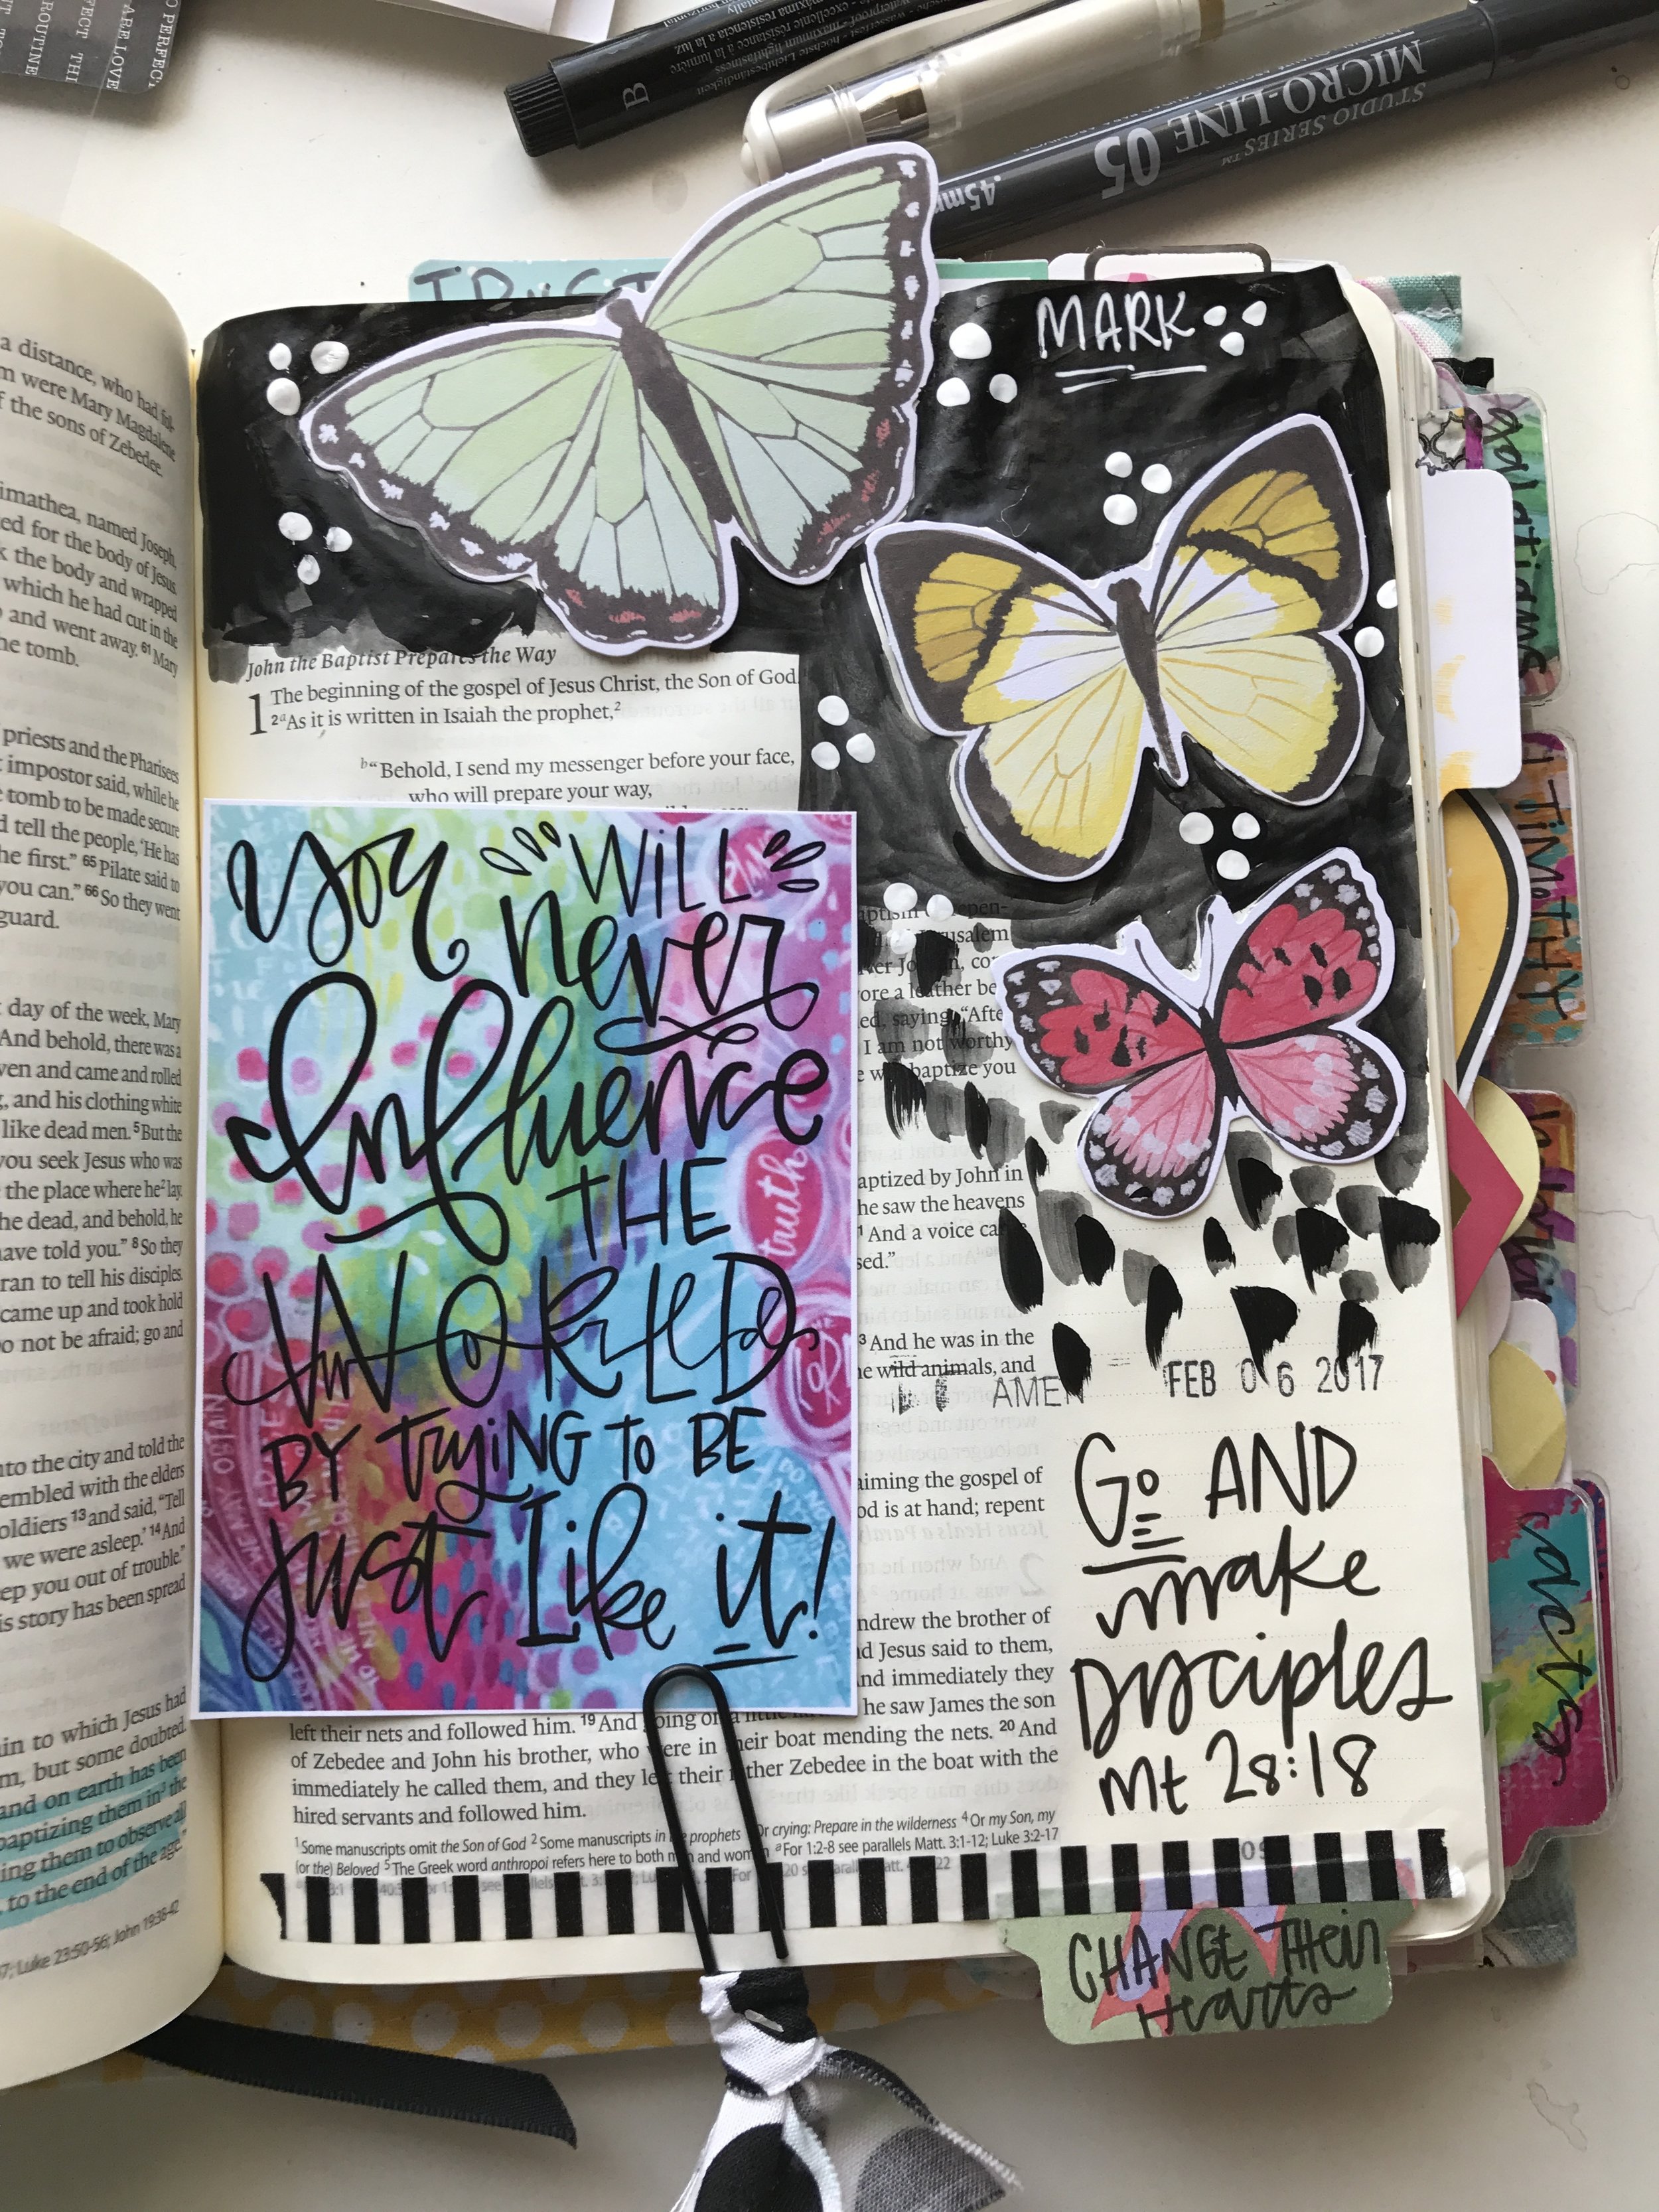 B
STUDIO SERIES™
MICRO-LINE 05
MARK
a distance, who had fol-
m were Mary Magdalene
f the sons of Zebedee.
imathea, named Joseph,
ed for the body of Jesus.
k the body and wrapped
which he had cut in the
and went away. 61 Mary
he tomb.
priests and the Pharisees
impostor said, while he
tomb to be made secure
d tell the people, 'He has
he first." 65 Pilate said to
you can." 66 So they went
guard.
day of the week, Mary
And behold, there was a
ven and came and rolled
, and his clothing white
like dead men. 5 But the
you seek Jesus who was
the place where he2 lay.
he dead, and behold, he
have told you." 8 So they
ran to tell his disciples.
came up and took hold
o not be afraid; go and
nto the city and told the
embled with the elders
oldiers 13 and said, "Tell
we were asleep.' 14 And
ep you out of trouble."
is story has been spread
in to which Jesus had
m, but some doubted.
and on earth has been
baptizing them in3 the
ing them to observe all
to the end of the age."
Luke 23:50-56; John 19:38-42
John the Baptist Prepares the Way
1 The beginning of the gospel of Jesus Christ, the Son of God.
2 a As it is written in Isaiah the prophet,2
b "Behold, I send my messenger before your face,
who will prepare your way,
You WILL
never
Influence
THE
WORLD
BY trying to BE
just like it!
truth
rusalem
ore a leather be
ed, saying, "Afte
I am not worthy
baptize you
aptized by John in
he saw the heavens
And a voice ca
sed."
3 And he was in the
e wild animals, and
AMEN
FEB 06 2017
aiming the gospel of
od is at hand; repent
ndrew the brother of
d Jesus said to them,
nd immediately they
he saw James the son
left their nets and followed him. 19 And going on a little
of Zebedee and John his brother, who were in their boat mending the nets. 20 And
immediately he called them, and they left their father Zebedee in the boat with the
hired servants and followed him.
1 Some manuscripts omit the Son of God 2 Some manuscripts in the prophets Or crying: Prepare in the wilderness 4 Or my Son, my
(or the) Beloved 5 The Greek word anthropoi refers here to both men and women a For 1:2-8 see parallels Matt. 3:1-12; Luke 3:2-17
Go AND
make
Disciples
Mt 28:18
CHANGE THEIR
Hearts
galatians
1 TIMOTHY
acts